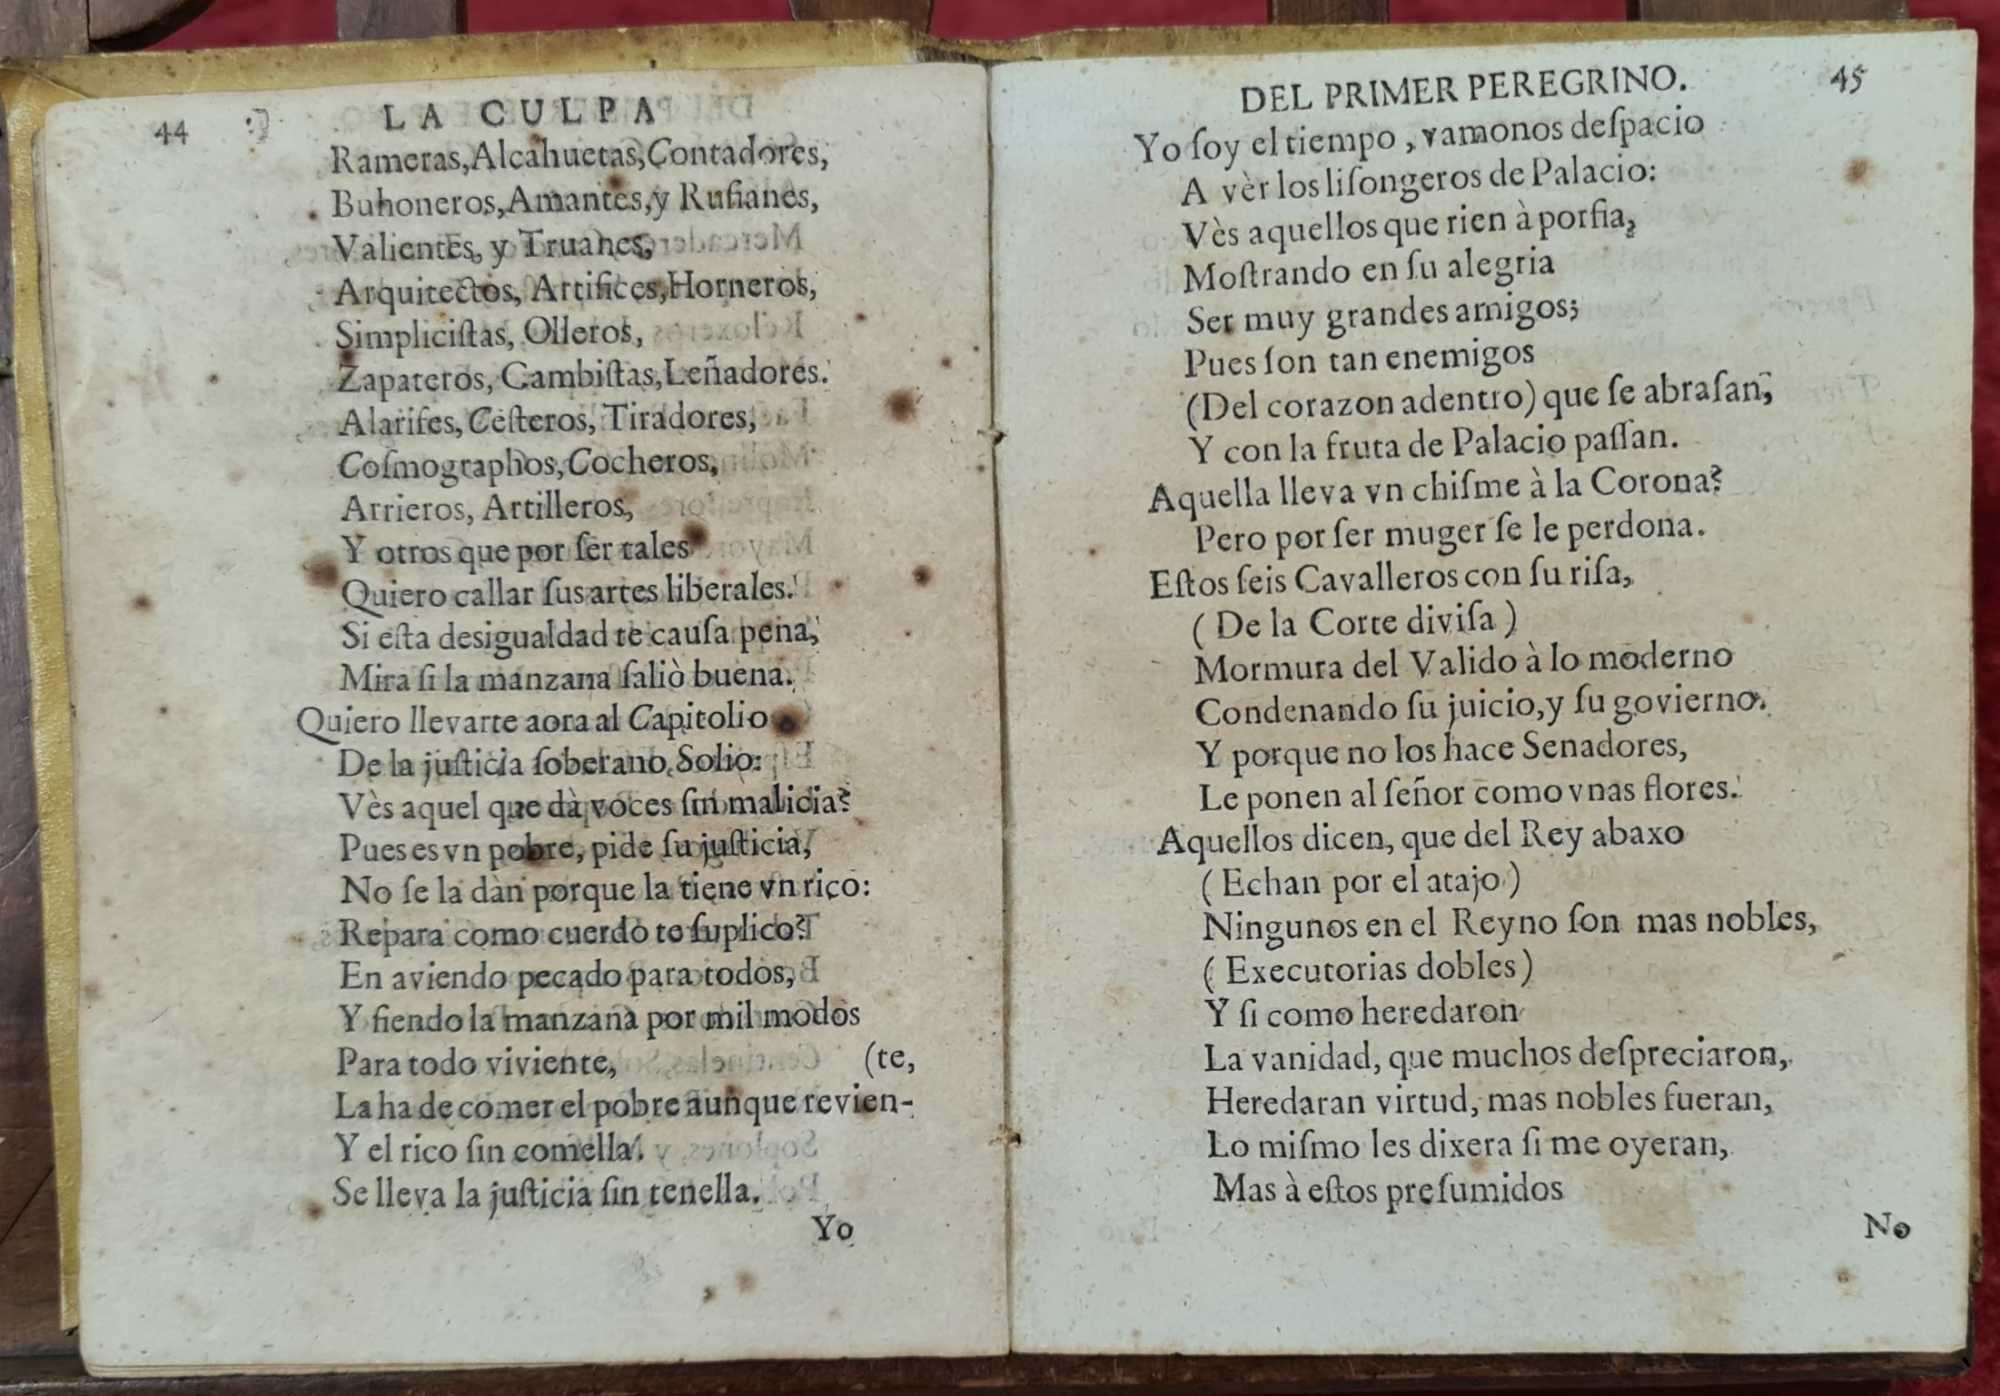 44
LA CULPA
Rameras, Alcahuetas, Contadores,
Buhoneros, Amantes, y Rufianes,
Valientes, y Truanes,
Arquitectos, Artifices, Horneros,
Simpliciſtas, Olleros,
Zapateros, Cambiſtas, Leñadores.
Alarifes, Ceſteros, Tiradores,
Coſmographos, Cocheros,
Arrieros, Artilleros,
Y otros que por ſer tales
Quiero callar ſus artes liberales.
Si eſta desigualdad te cauſa pena,
Mira ſi la manzana ſaliò buena.
Quiero llevarte aora al Capitolio
De la juſticia ſoberano, Solio:
Vès aquel que dà voces ſin malicia?
Pues es vn pobre, pide ſu juſticia,
No ſe la dàn porque la tiene vn rico:
Repara como cuerdo te ſuplico?
En aviendo pecado para todos,
Y ſiendo la manzana por mil modos
Para todo viviente, (te,
La ha de comer el pobre aunque revien-
Y el rico ſin comella.
Se lleva la juſticia ſin tenella.
Yo
DEL PRIMER PEREGRINO. 45
Yo ſoy el tiempo, vamonos deſpacio
A vèr los liſongeros de Palacio:
Vès aquellos que rien à porfia,
Moſtrando en ſu alegria
Ser muy grandes amigos;
Pues ſon tan enemigos
(Del corazon adentro) que ſe abraſan,
Y con la fruta de Palacio paſſan.
Aquella lleva vn chiſme à la Corona?
Pero por ſer muger ſe le perdona.
Eſtos ſeis Cavalleros con ſu riſa,
( De la Corte diviſa )
Mormura del Valido à lo moderno
Condenando ſu juicio, y ſu govierno.
Y porque no los hace Senadores,
Le ponen al ſeñor como vnas flores.
Aquellos dicen, que del Rey abaxo
( Echan por el atajo )
Ningunos en el Reyno ſon mas nobles,
( Executorias dobles )
Y ſi como heredaron
La vanidad, que muchos deſpreciaron,
Heredaran virtud, mas nobles fueran,
Lo miſmo les dixera ſi me oyeran,
Mas à eſtos preſumidos
No